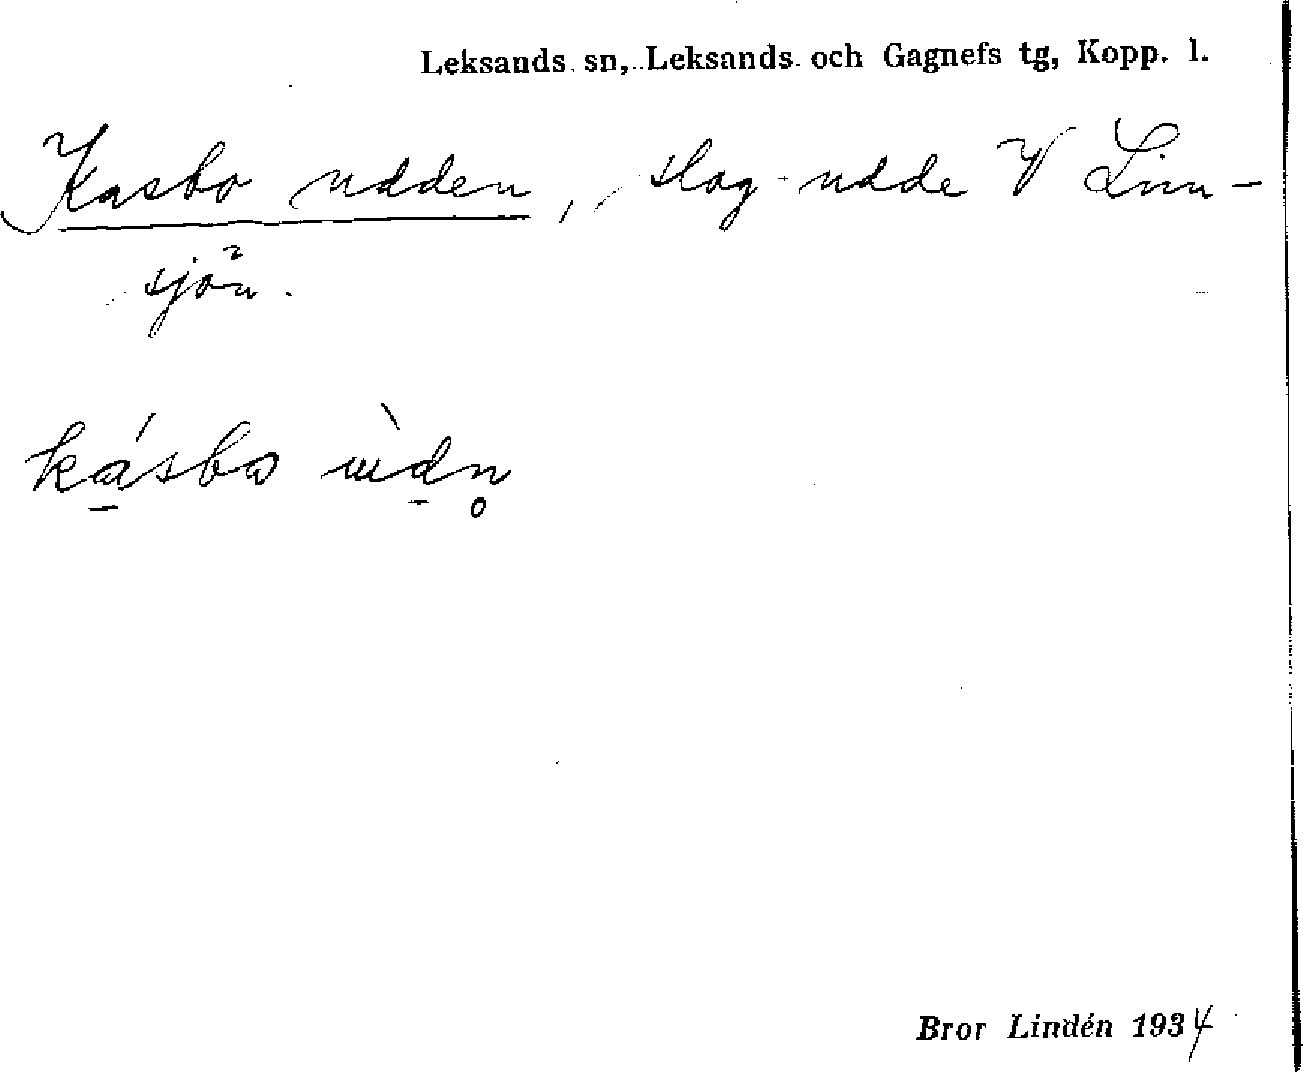 Leksands sn, Leksands och Gagnefs tg, Kopp. l.
Kasbo udden, slog-udde V Lim-
sjön.
kásbω ùdn̥
Bror Lindén 1934